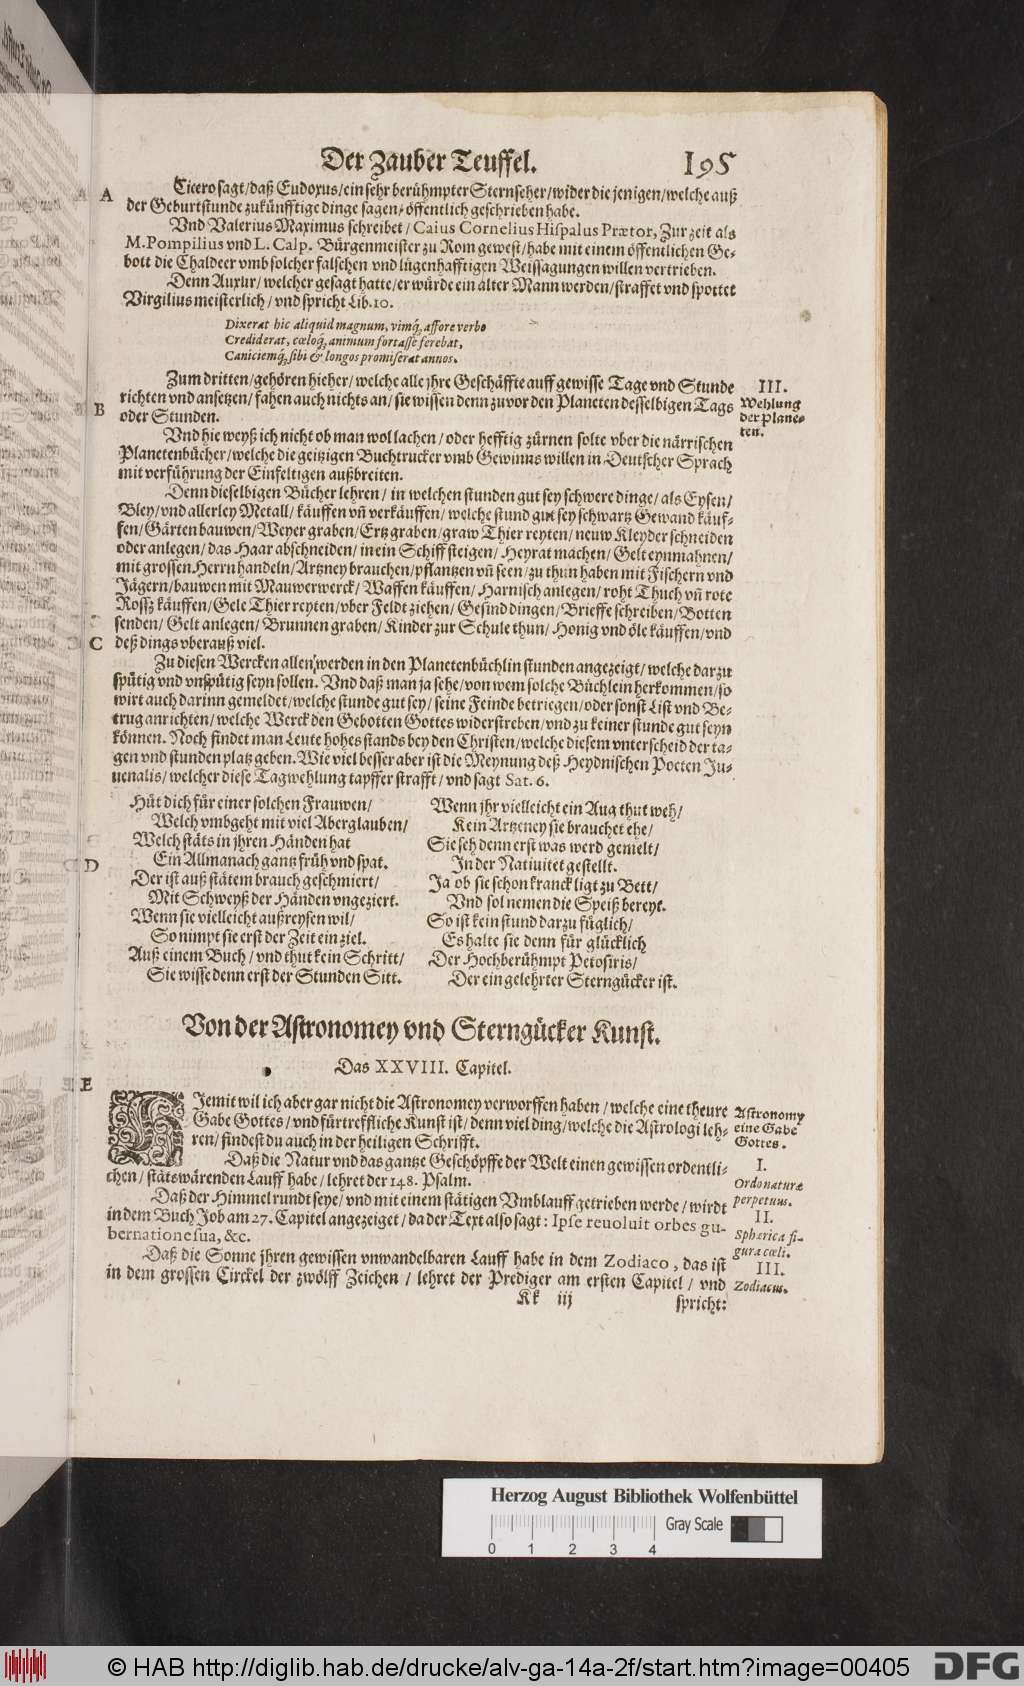 Der Zauber Teuffel. 195
A Cicero sagt/ daß Eudoxus/ ein sehr berühmpter Sternseher/ wider die jenigen/ welche auß
der Geburtstunde zukünfftige dinge sagen/ öffentlich geschrieben habe.
Vnd Valerius Maximus schreibet/ Caius Cornelius Hiſpalus Prætor, Zur zeit als
M. Pompilius vnd L. Calp. Bürgenmeister zu Rom gewest/ habe mit einem öffentlichen Ge-
bott die Chaldeer vmb solcher falschen vnd lügenhafftigen Weissagungen willen vertrieben.
Denn Auxur/ welcher gesagt hatte/ er würde ein alter Mann werden/ straffet vnd spottet
Virgilius meisterlich/ vnd spricht Lib. 10.
Dixerat hic aliquid magnum, vimq́; affore verbo
Crediderat, cœloq́; animum fortaſſe ferebat,
Caniciemq́; ſibi & longos promiſerat annos.
Zum dritten/ gehören hieher/ welche alle jhre Geschäffte auff gewisse Tage vnd Stunde
richten vnd ansetzen/ fahen auch nichts an/ sie wissen denn zuvor den Planeten desselbigen Tags
oder Stunden.
III.
Wehlung
der Plane-
ten.
B
Vnd hie weyß ich nicht ob man wol lachen/ oder hefftig zürnen solte vber die närrischen
Planetenbücher/ welche die geitzigen Buchtrucker vmb Gewinns willen in Deutscher Sprach
mit verführung der Einfeltigen außbreiten.
Denn dieselbigen Bücher lehren/ in welchen stunden gut sey schwere dinge/ als Eysen/
Bley/ vnd allerley Metall/ käuffen vñ verkäuffen/ welche stund gut sey schwartz Gewand käuf-
fen/ Gärten bauwen/ Weyer graben/ Ertz graben/ graw Thier reyten/ neuw Kleyder schneiden
oder anlegen/ das Haar abschneiden/ in ein Schiff steigen/ Heyrat machen/ Gelt eynmahnen/
mit grossen Herrn handeln/ Artzney brauchen/ pflantzen vñ seen/ zu thun haben mit Fischern vnd
Jägern/ bauwen mit Mauwerwerck/ Waffen käuffen/ Harnisch anlegen/ roht Thuch vñ rote
Rossz käuffen/ Gele Thier reyten/ vber Feldt ziehen/ Gesind dingen/ Brieffe schreiben/ Botten
senden/ Gelt anlegen/ Brunnen graben/ Kinder zur Schule thun/ Honig vnd öle käuffen/ vnd
C deß dings vberauß viel.
Zu diesen Wercken allen/ werden in den Planetenbüchlin stunden angezeigt/ welche darzu
spütig vnd vnspütig seyn sollen. Vnd daß man ja sehe/ von wem solche Büchlein herkommen/ so
wirt auch darinn gemeldet/ welche stunde gut sey/ seine Feinde betriegen/ oder sonst List vnd Be-
trug anrichten/ welche Werck den Gebotten Gottes widerstreben/ vnd zu keiner stunde gut seyn
können. Noch findet man Leute hohes stands bey den Christen/ welche diesem vnterscheid der ta-
gen vnd stunden platz geben. Wie viel besser aber ist die Meynung deß Heydnischen Poeten Ju-
uenalis/ welcher diese Tagwehlung tapffer strafft/ vnd sagt Sat. 6.
Hüt dich für einer solchen Frauwen/
Welch vmbgeht mit viel Aberglauben/
Welch stäts in jhren Händen hat
D Ein Allmanach gantz früh vnd spat.
Der ist auß stätem brauch geschmiert/
Mit Schweyß der Händen vngeziert.
Wenn sie vielleicht außreysen wil/
So nimpt sie erst der Zeit ein ziel.
Auß einem Buch/ vnd thut kein Schritt/
Sie wisse denn erst der Stunden Sitt.
Wenn jhr vielleicht ein Aug thut weh/
Kein Artzeney sie brauchet ehe/
Sie seh denn erst was werd gemelt/
In der Nativitet gestellt.
Ja ob sie schon kranck ligt zu Bett/
Vnd sol nemen die Speiß bereyt.
So ist kein stund darzu füglich/
Es halte sie denn für glücklich
Der Hochberühmpt Petosiris/
Der ein gelehrter Sterngücker ist.
Von der Astronomey vnd Sterngücker Kunst.
Das XXVIII. Capitel.
E
HJemit wil ich aber gar nicht die Astronomey verworffen haben/ welche eine theure
Gabe Gottes/ vnd fürtreffliche Kunst ist/ denn viel ding/ welche die Astrologi leh-
ren/ findest du auch in der heiligen Schrifft.
Astronomy
eine Gabe
Gottes.
Daß die Natur vnd das gantze Geschöpffe der Welt einen gewissen ordentli-
chen/ stätswärenden Lauff habe/ lehret der 148. Psalm.
I.
Ordo naturæ
perpetuus.
Daß der Himmel rundt seye/ vnd mit einem stätigen Vmblauff getrieben werde/ wirdt
in dem Buch Job am 27. Capitel angezeiget/ da der Text also sagt: Ipſe reuoluit orbes gu-
bernatione ſua, &c.
II.
Sphærica fi-
gura cœli.
Daß die Sonne jhren gewissen vnwandelbaren Lauff habe in dem Zodiaco, das ist
in dem grossen Circkel der zwölff Zeichen/ lehret der Prediger am ersten Capitel/ vnd
III.
Zodiacus.
Kk iij spricht:
Herzog August Bibliothek Wolfenbüttel
Gray Scale
0 1 2 3 4
© HAB http://diglib.hab.de/drucke/alv-ga-14a-2f/start.htm?image=00405
DFG